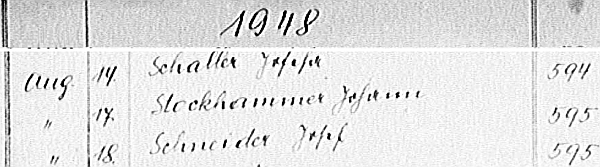 1948
Aug. 14. Schaller Josefa 594
" 17. Stockhammer Johann 595
" 18. Schneider Josef 595